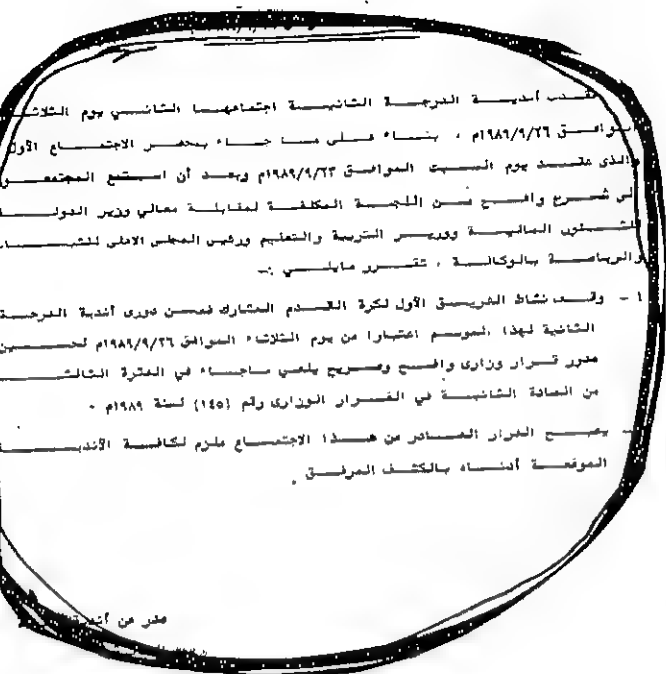 عقدت أندية الدرجة الثانية اجتماعها الثاني يوم الثلاثاء
الموافق ١٩٨٩/٩/٢٦م ، بناء على ما جاء بمحضر الاجتماع الأول
والذى عقد يوم السبت الموافق ١٩٨٩/٩/٢٣م وبعد أن استمع المجتمعو
الى شرح واضح من اللجنة المكلفة لمقابلة معالي وزير الدولة
للشئون المالية ووزير التربية والتعليم ورئيس المجلس الاعلى للشباب
والرياضة بالوكالة ، تقرر مايلي :-
١ - وقف نشاط الفريق الأول لكرة القدم المشارك ضمن دورى أندية الدرجة
الثانية لهذا الموسم اعتبارا من يوم الثلاثاء الموافق ١٩٨٩/٩/٢٦م لحين
صدور قرار وزارى واضح وصريح يلغي ماجاء في الفقرة الثالثة
من المادة الثانية في القرار الوزارى رقم (١٤٥) لسنة ١٩٨٩م ٠
يصبح القرار الصادر من هذا الاجتماع ملزم لكافة الأندية
الموقعة أدناه بالكشف المرفق .
صدر عن أندية